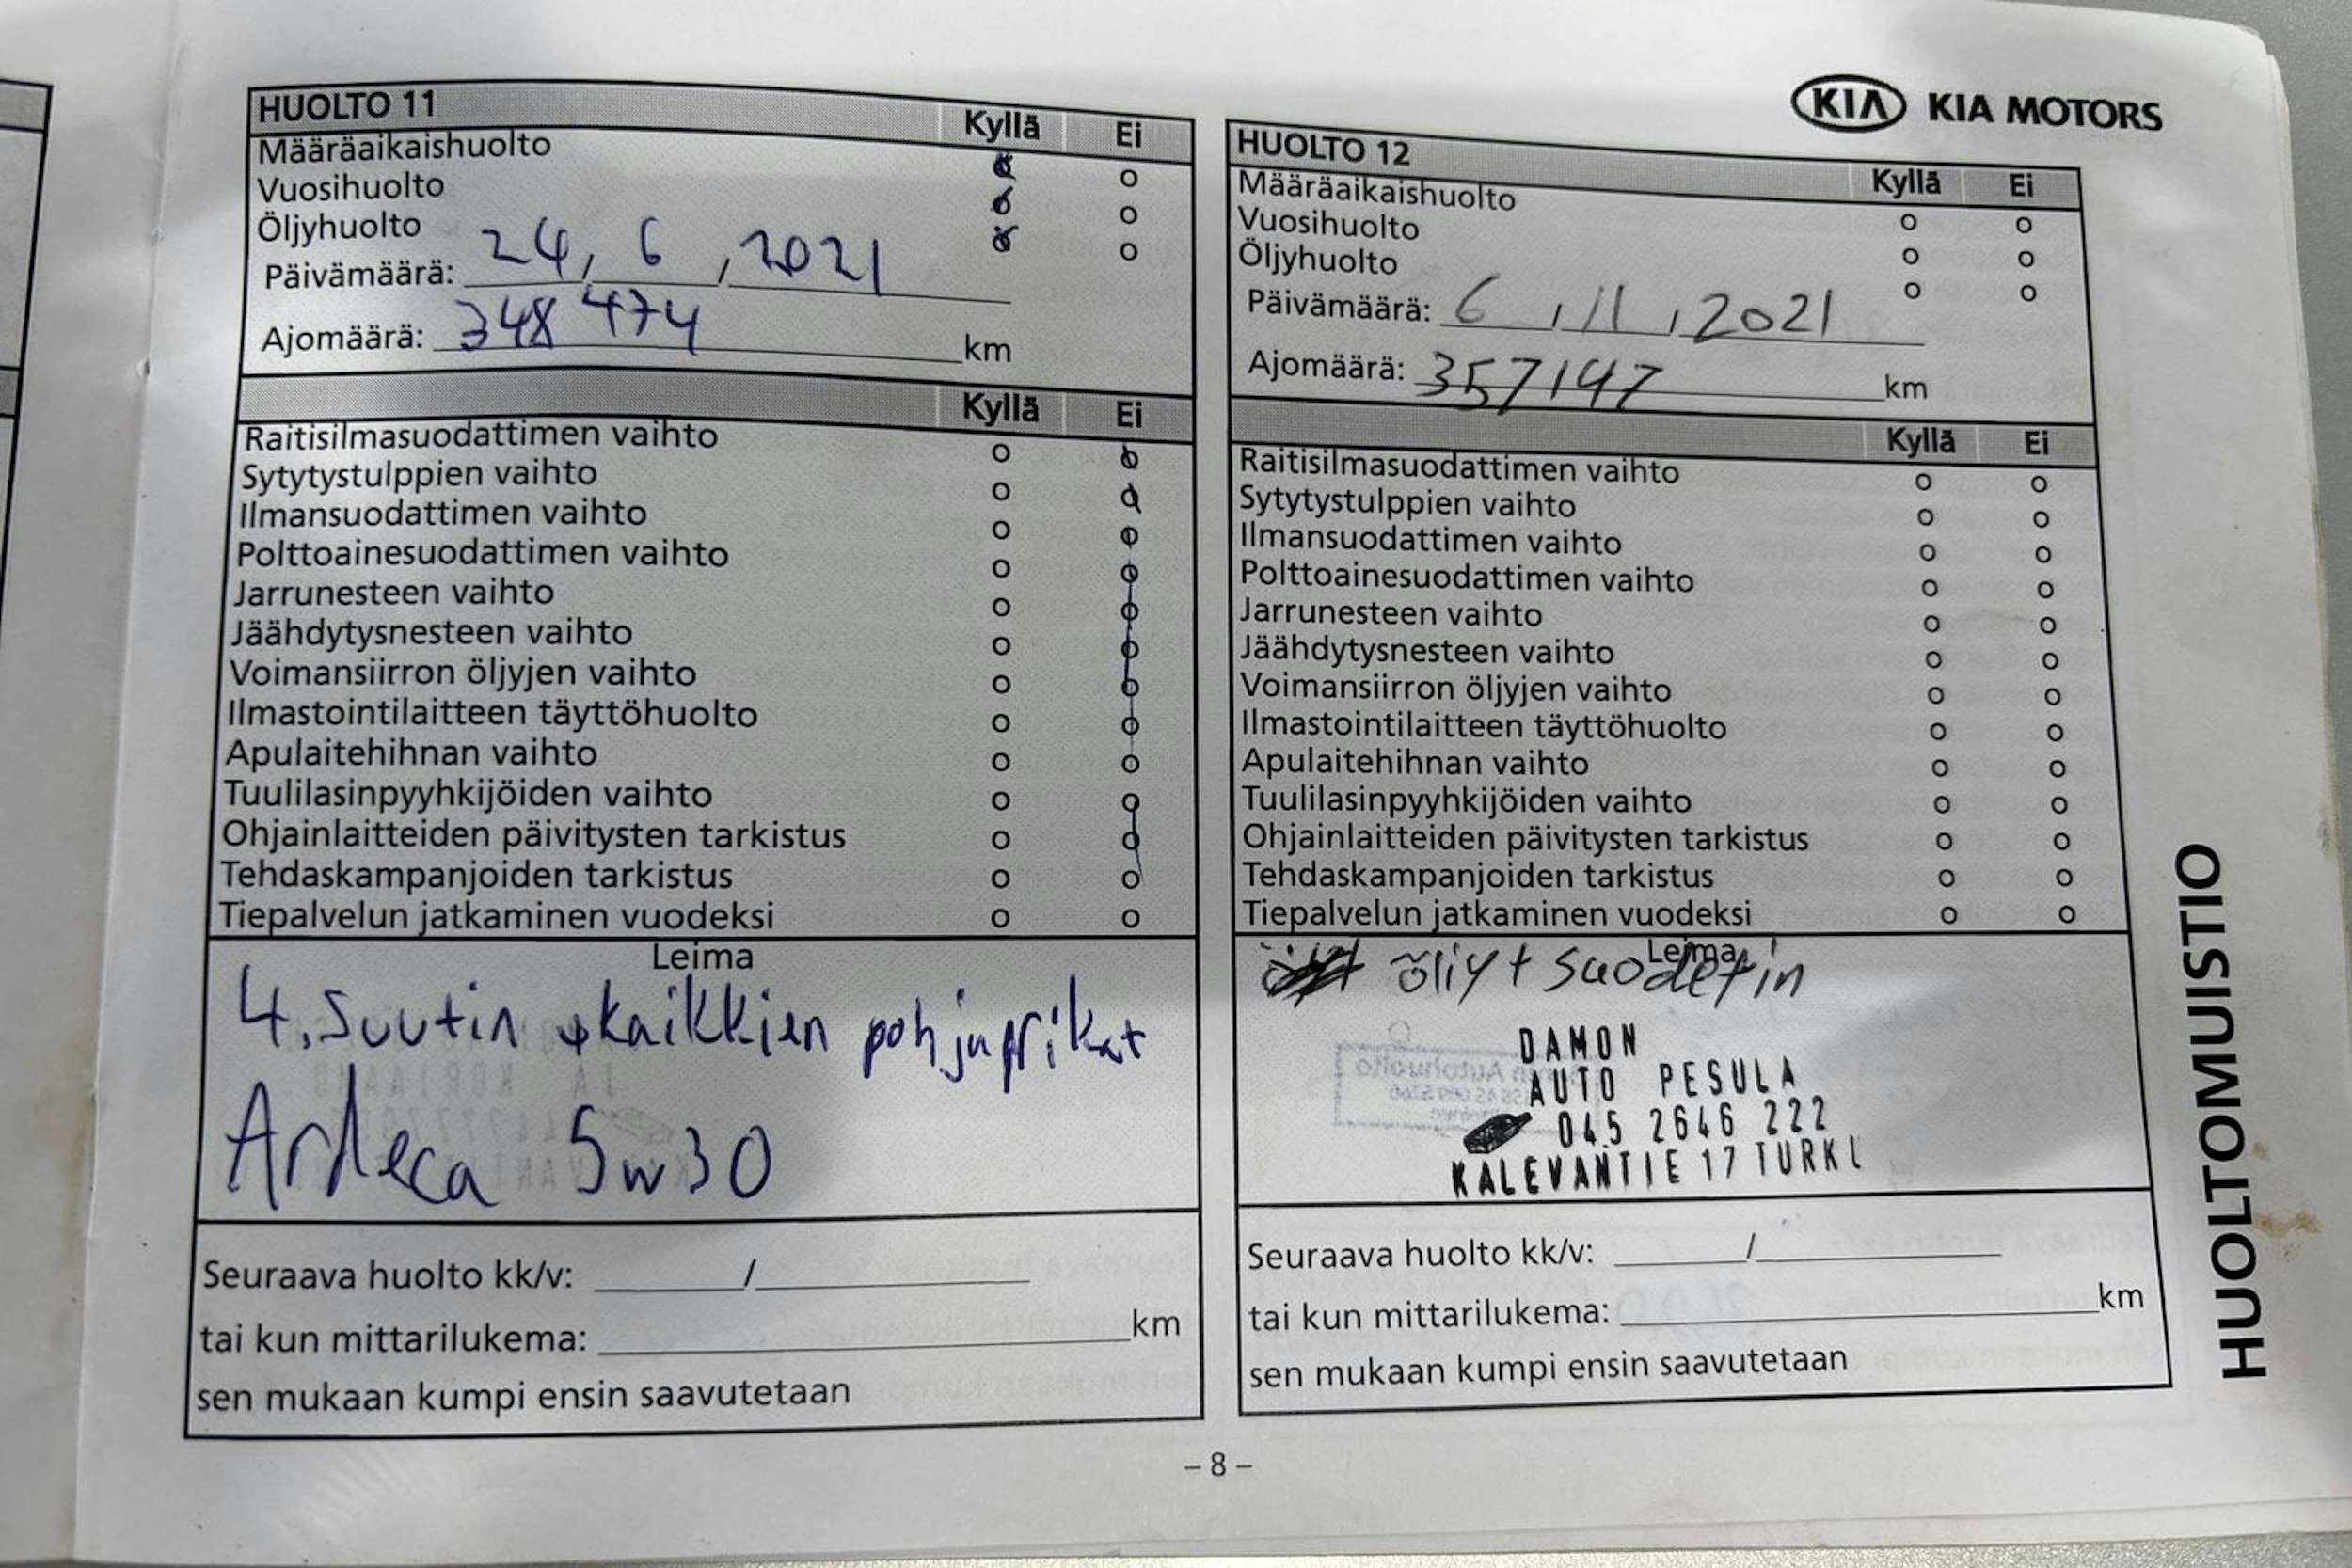 HUOLTO 11
Kyllä Ei
Määräaikaishuolto o o
Vuosihuolto o o
Öljyhuolto o o
Päivämäärä: 24 / 6 / 2021
Ajomäärä: 348 474 km
Kyllä Ei
Raitisilmasuodattimen vaihto o o
Sytytystulppien vaihto o o
Ilmansuodattimen vaihto o o
Polttoainesuodattimen vaihto o o
Jarrunesteen vaihto o o
Jäähdytysnesteen vaihto o o
Voimansiirron öljyjen vaihto o o
Ilmastointilaitteen täyttöhuolto o o
Apulaitehihnan vaihto o o
Tuulilasinpyyhkijöiden vaihto o o
Ohjainlaitteiden päivitysten tarkistus o o
Tehdaskampanjoiden tarkistus o o
Tiepalvelun jatkaminen vuodeksi o o
Leima
4. suutin + kaikkien pohjaprikat
Ardeca 5w30
Seuraava huolto kk/v: /
tai kun mittarilukema: km
sen mukaan kumpi ensin saavutetaan
KIA KIA MOTORS
HUOLTO 12
Kyllä Ei
Määräaikaishuolto o o
Vuosihuolto o o
Öljyhuolto o o
Päivämäärä: 6 / 11 / 2021
Ajomäärä: 357147 km
Kyllä Ei
Raitisilmasuodattimen vaihto o o
Sytytystulppien vaihto o o
Ilmansuodattimen vaihto o o
Polttoainesuodattimen vaihto o o
Jarrunesteen vaihto o o
Jäähdytysnesteen vaihto o o
Voimansiirron öljyjen vaihto o o
Ilmastointilaitteen täyttöhuolto o o
Apulaitehihnan vaihto o o
Tuulilasinpyyhkijöiden vaihto o o
Ohjainlaitteiden päivitysten tarkistus o o
Tehdaskampanjoiden tarkistus o o
Tiepalvelun jatkaminen vuodeksi o o
Leima
öliy + suodetin
DAMON
AUTO PESULA
045 2646 222
KALEVANTIE 17 TURKL
Seuraava huolto kk/v: /
tai kun mittarilukema: km
sen mukaan kumpi ensin saavutetaan
HUOLTOMUISTIO
– 8 –